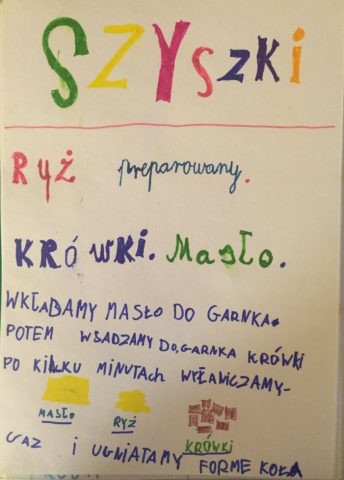 SZYSZKi
RYŻ preparowany.
KRÓWKI. Masło.
WKŁADAMY MASŁO DO GARNKA.
POTEM WSADZAMY DO GARNKA KRÓWKI
PO KILKU MINUTACH WYŁANICZAMY-
MASŁO RYŻ KRÓWKi
GAZ i UGNIATAMY FORME KOŁA